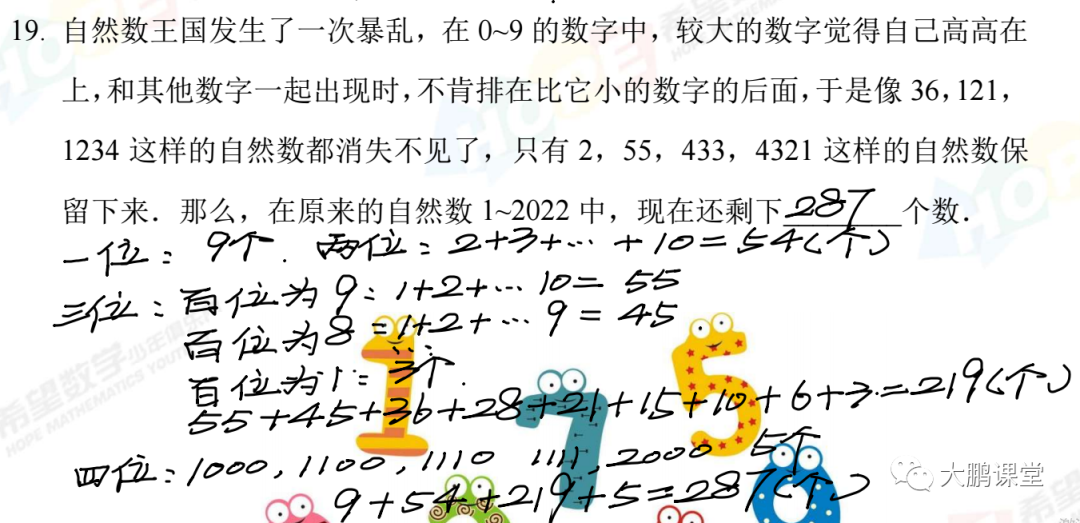 19. 自然数王国发生了一次暴乱，在 0~9 的数字中，较大的数字觉得自己高高在
上，和其他数字一起出现时，不肯排在比它小的数字的后面，于是像 36，121，
1234 这样的自然数都消失不见了，只有 2，55，433，4321 这样的自然数保
留下来．那么，在原来的自然数 1~2022 中，现在还剩下 287 个数．
一位：9个．两位：2+3+…+10=54(个)
三位：百位为9：1+2+…10=55
百位为8：1+2+…9=45
百位为1：3个．
55+45+36+28+21+15+10+6+3=219(个)
四位：1000，1100，1110 1111，2000 5个
9+54+219+5=287(个)
大鹏课堂
希望数学 少年俱乐部
HOPE MATHEMATICS YOUTH